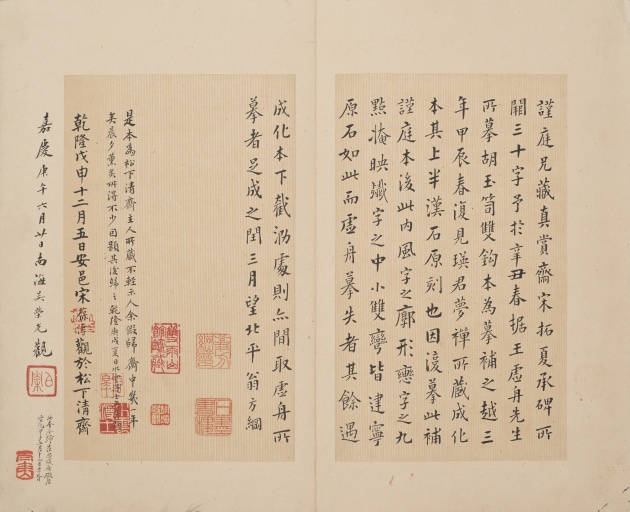 謹庭兄藏真賞齋宋拓夏承碑所
闕三十字予於辛丑春据王虛舟先生
所摹胡玉筍雙鉤本為摹補之越三
年甲辰春復見瑛君夢禪所藏成化
本其上半漢石原刻也因復摹此補
謹庭本後此內風字之廓形戀字之九
點掩映孅字之中小雙戀皆建寧
原石如此而虛舟摹失者其餘遇
成化本下截泐處則亦間取虛舟所
摹者足成之閏三月望北平翁方綱
是本為松下清齋主人所藏不輕示人余假歸齋中幾一年
矣晨夕薰 所得不少因題其後歸之乾隆庚戌夏日
乾隆戊申十二月五日安邑宋葆淳觀於松下清齋
嘉慶庚午六月廿日南海吳榮光觀